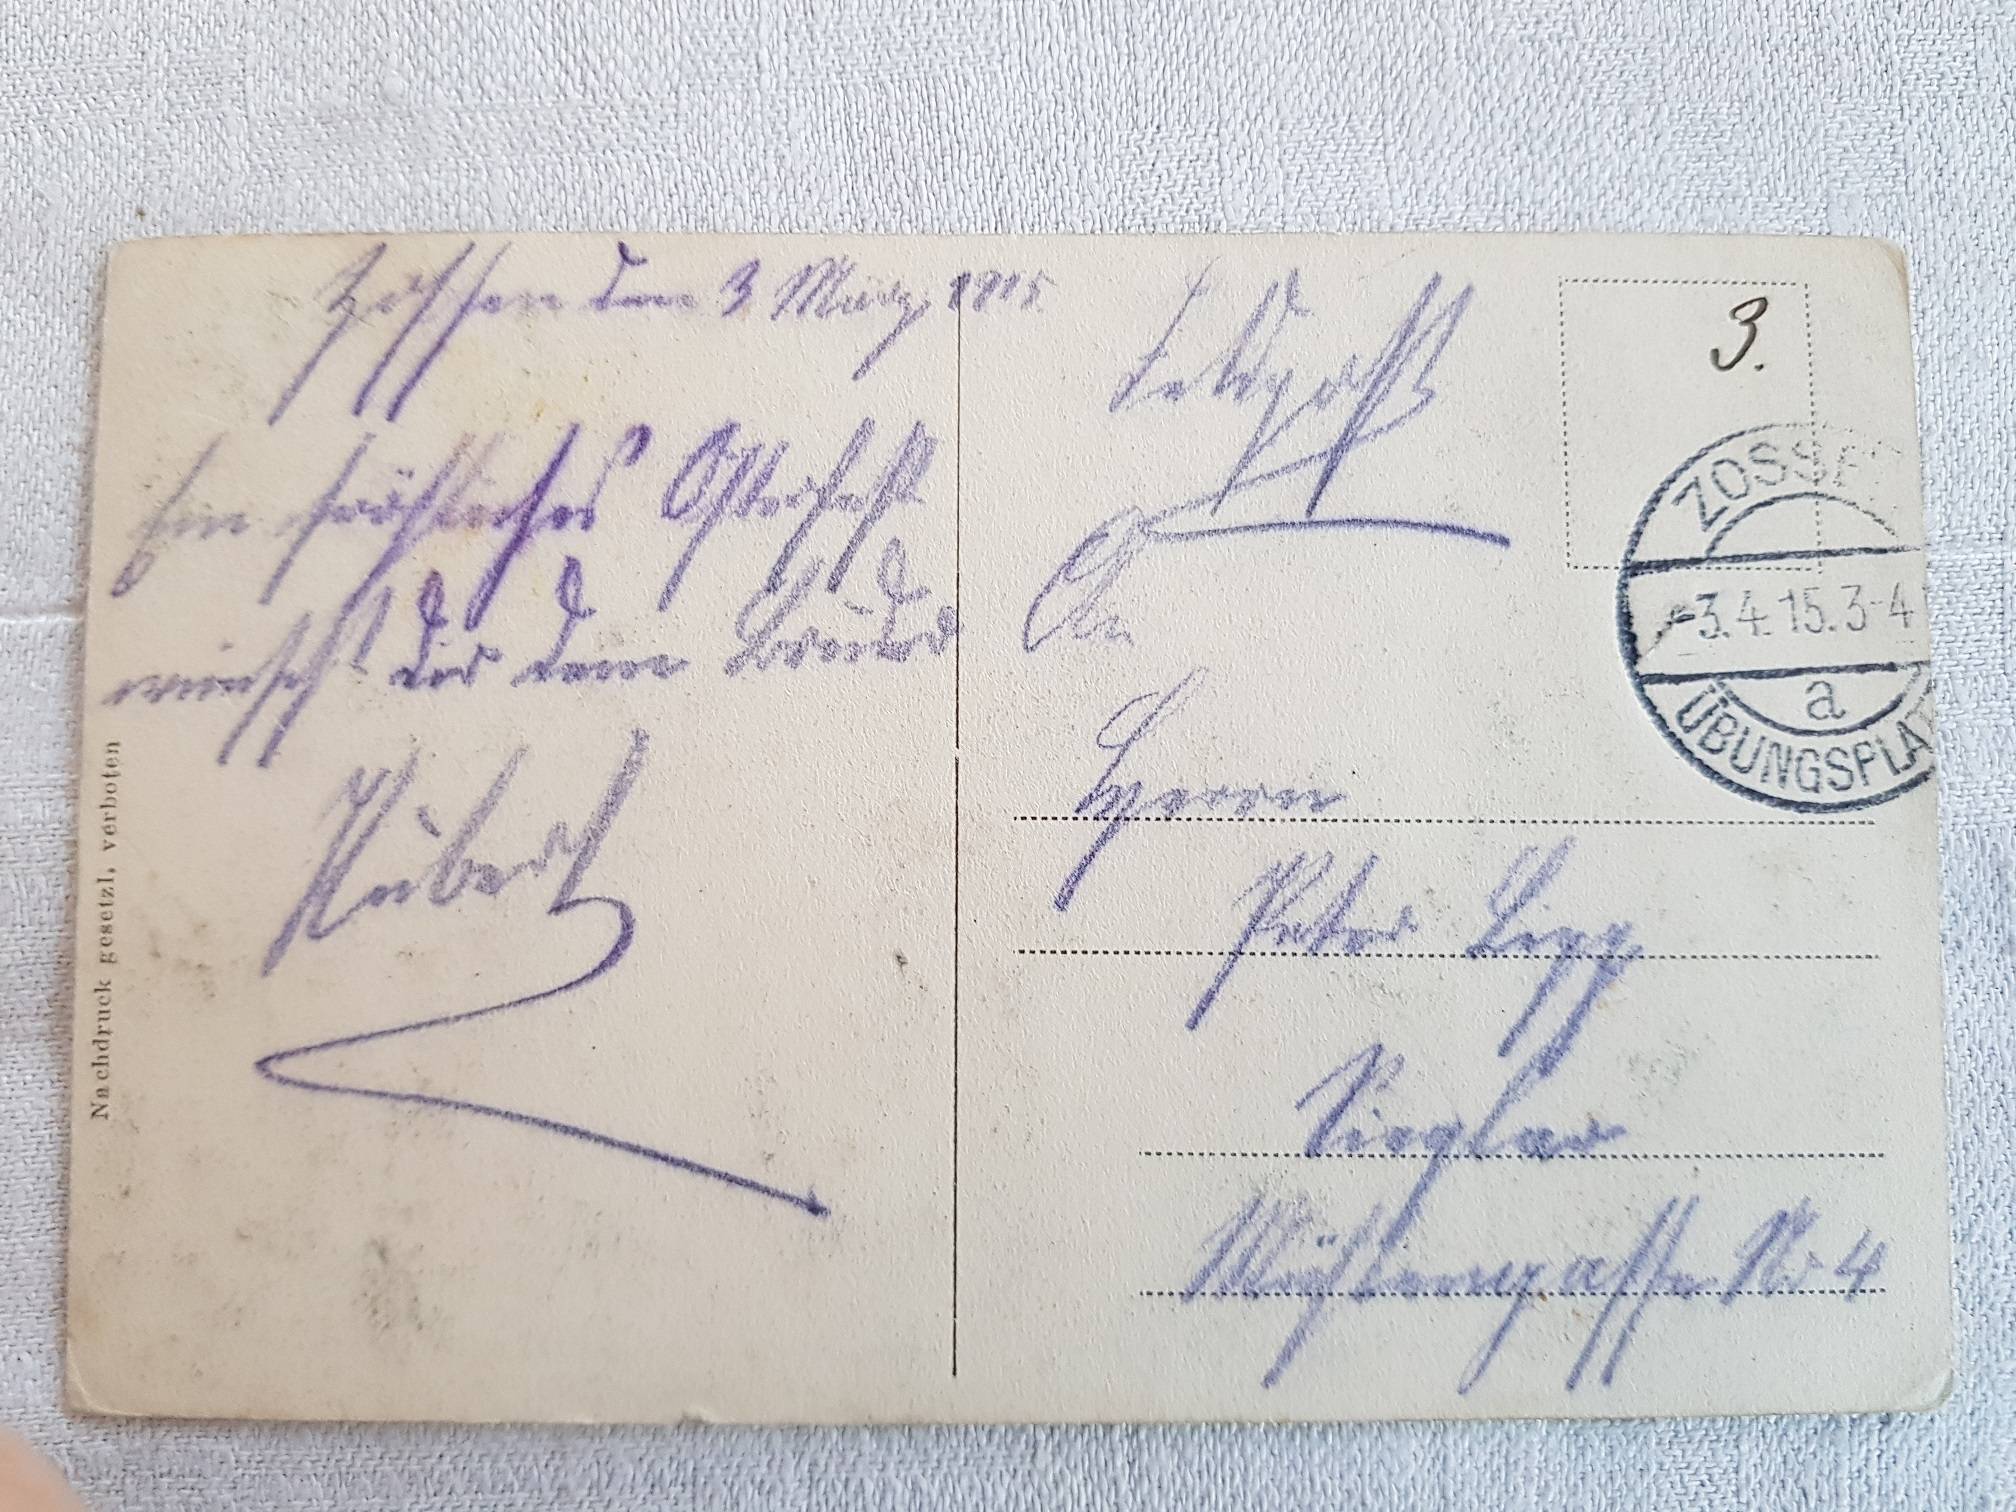 Zossen den 3 März 1915.
Ein fröhliches Osterfest
wünscht dir dein Bruder
Hubert
Nachdruck gesetzl. verboten
Feldpost
3.
ZOSSEN
-3.4.15.3-4
a
ÜBUNGSPLA
An
Herrn
Peter Lipp
Sieglar
Mühlengasse Nr 4